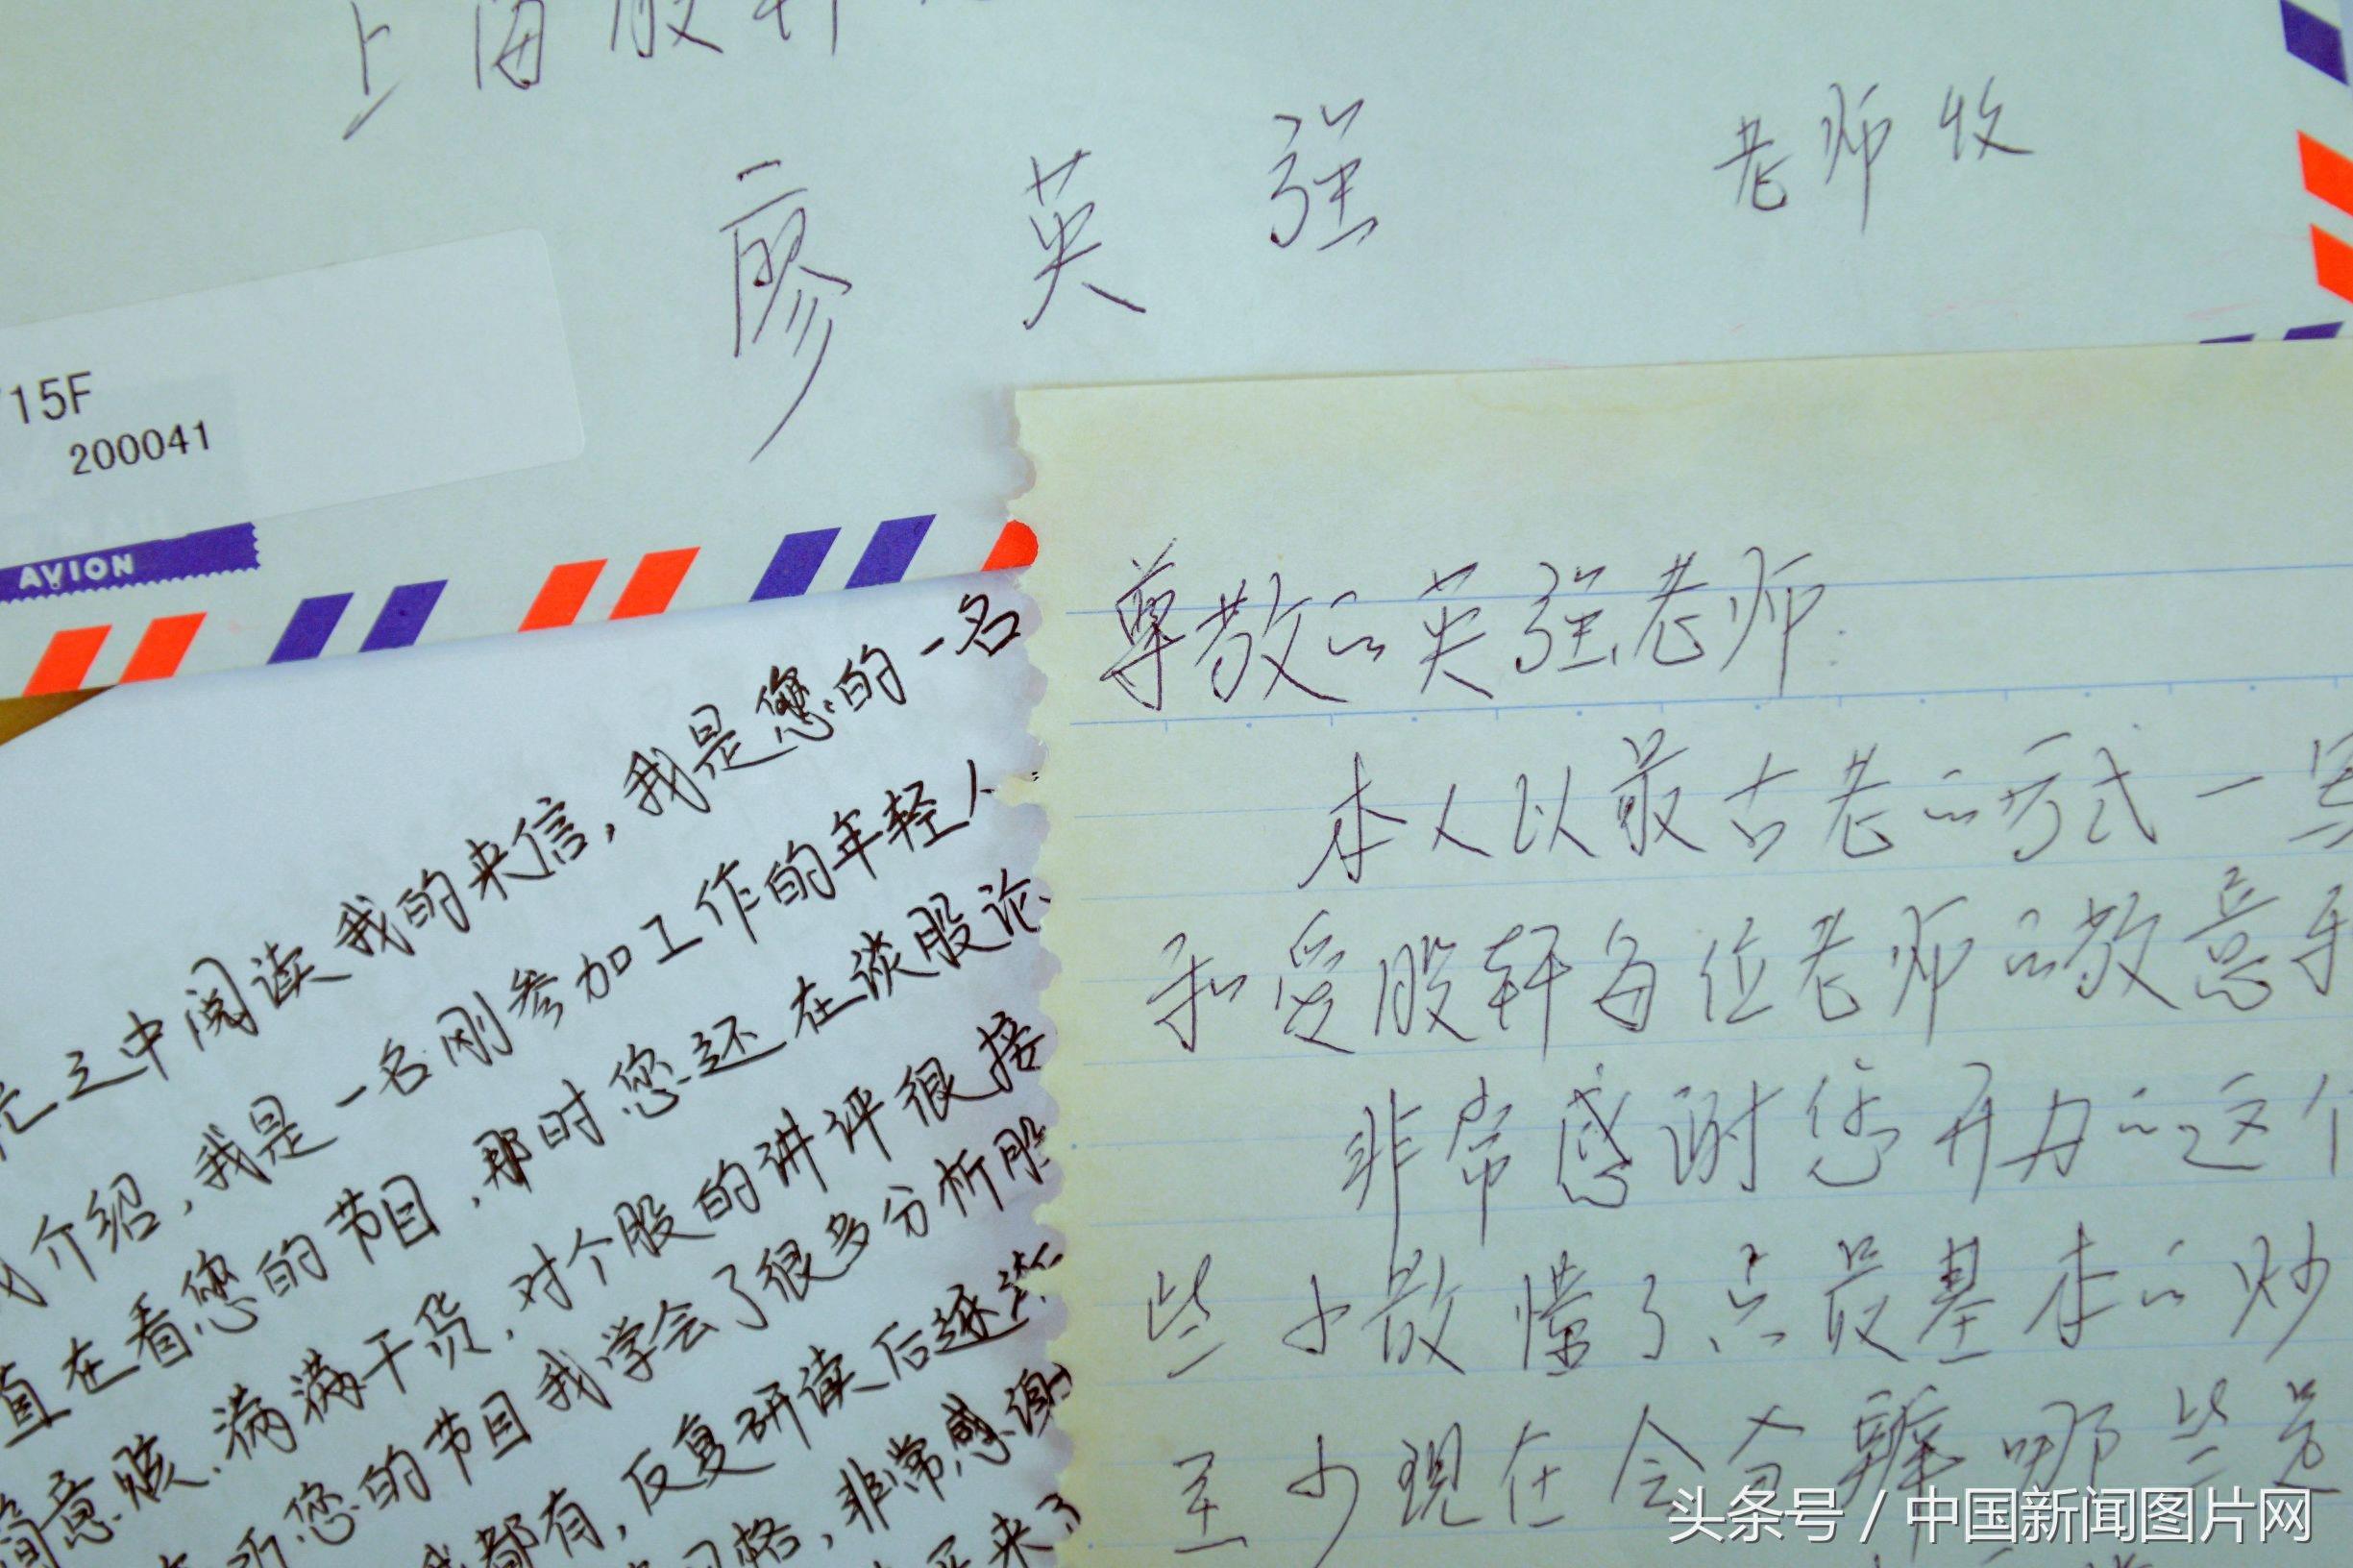 上海股轩
廖英强 老师收
15F
200041
AVION
之中阅读我的来信，我是您的一名
介绍，我是一名刚参加工作的年轻人
直在看您的节目，那时您还在谈股论
简意赅，满满干货，对个股的讲评很接
您的节目我学会了很多分析股
都有，反复研读后逐渐
格，非常感谢
来了
尊敬的英强老师：
本人以最古老的方式一写
和爱股轩每位老师的敬意和
非常感谢您开办的这个
些小散懂了点最基本的炒
至少现在会分辨哪些是
头条号 / 中国新闻图片网